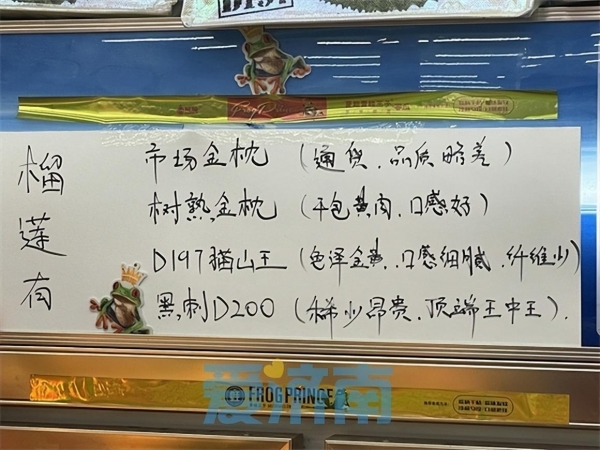 榴莲有
市场金枕（通货、品质略差）
树熟金枕（干包黄肉、口感好）
D197猫山王（色泽金黄、口感细腻、纤维少）
黑刺D200（稀少昂贵、顶端王中王）.
FROG PRINCE
爱济南